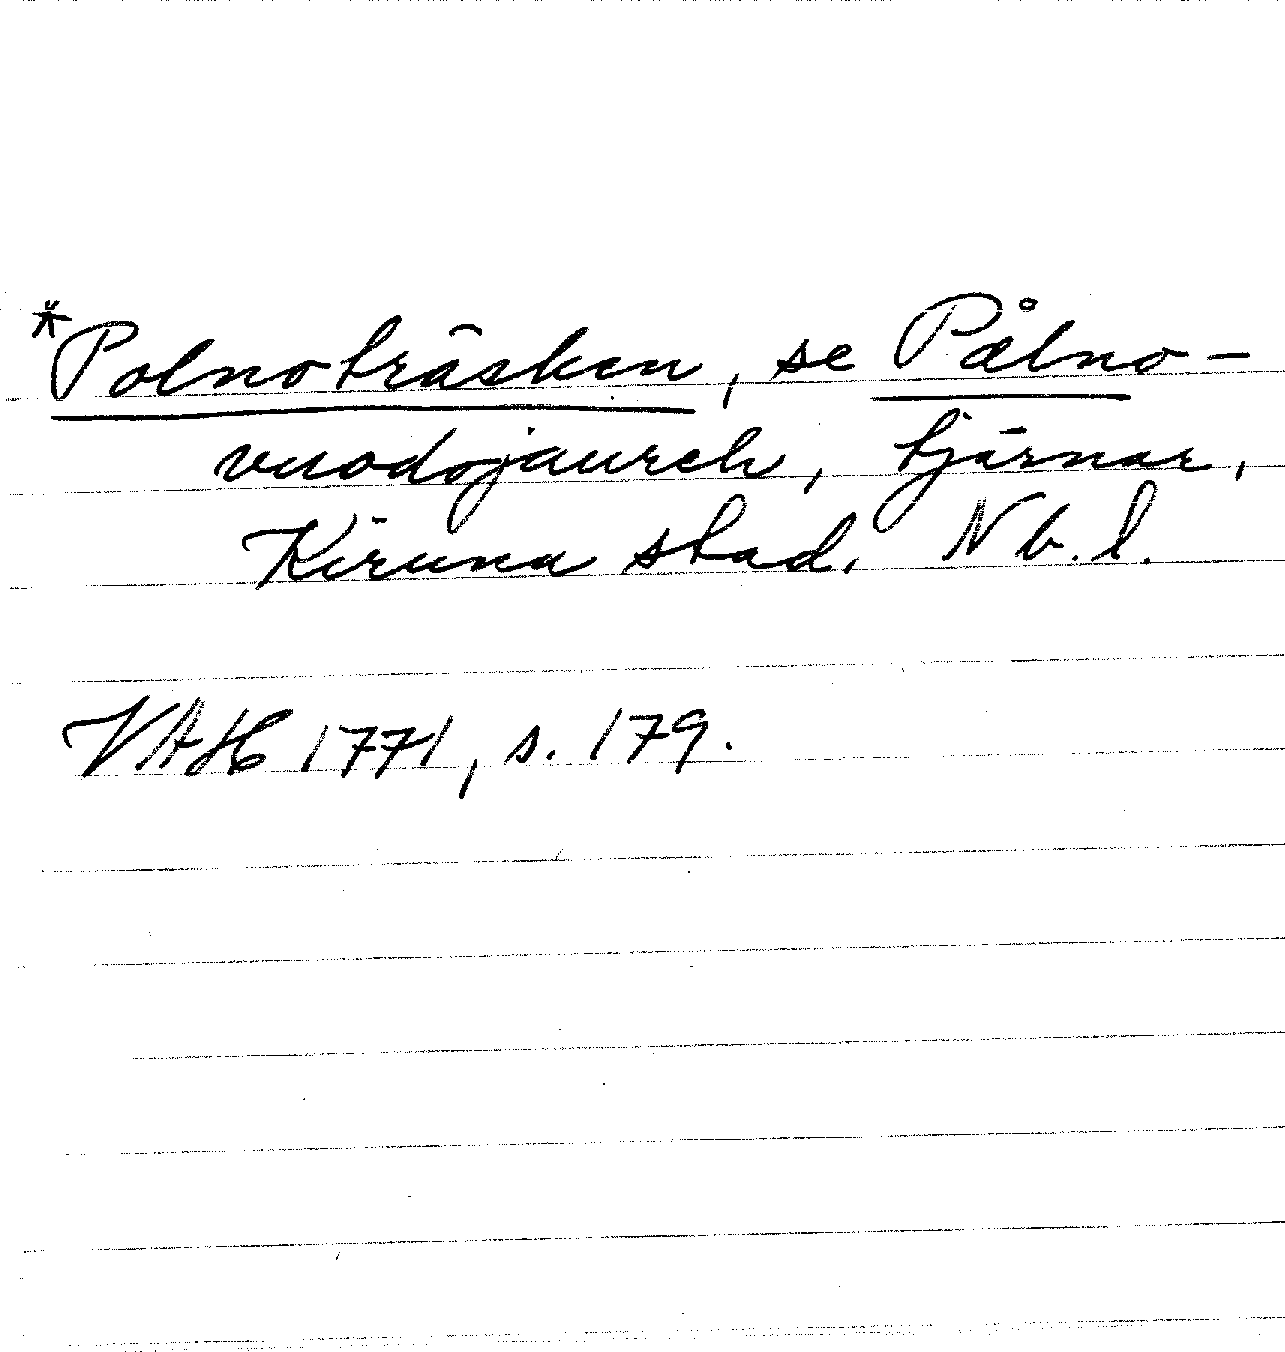 *Polnoträsken, se Pålno-
vuodojaureh, tjärnar,
Kiruna stad. Nb. l.
VAH 1771, s. 179.